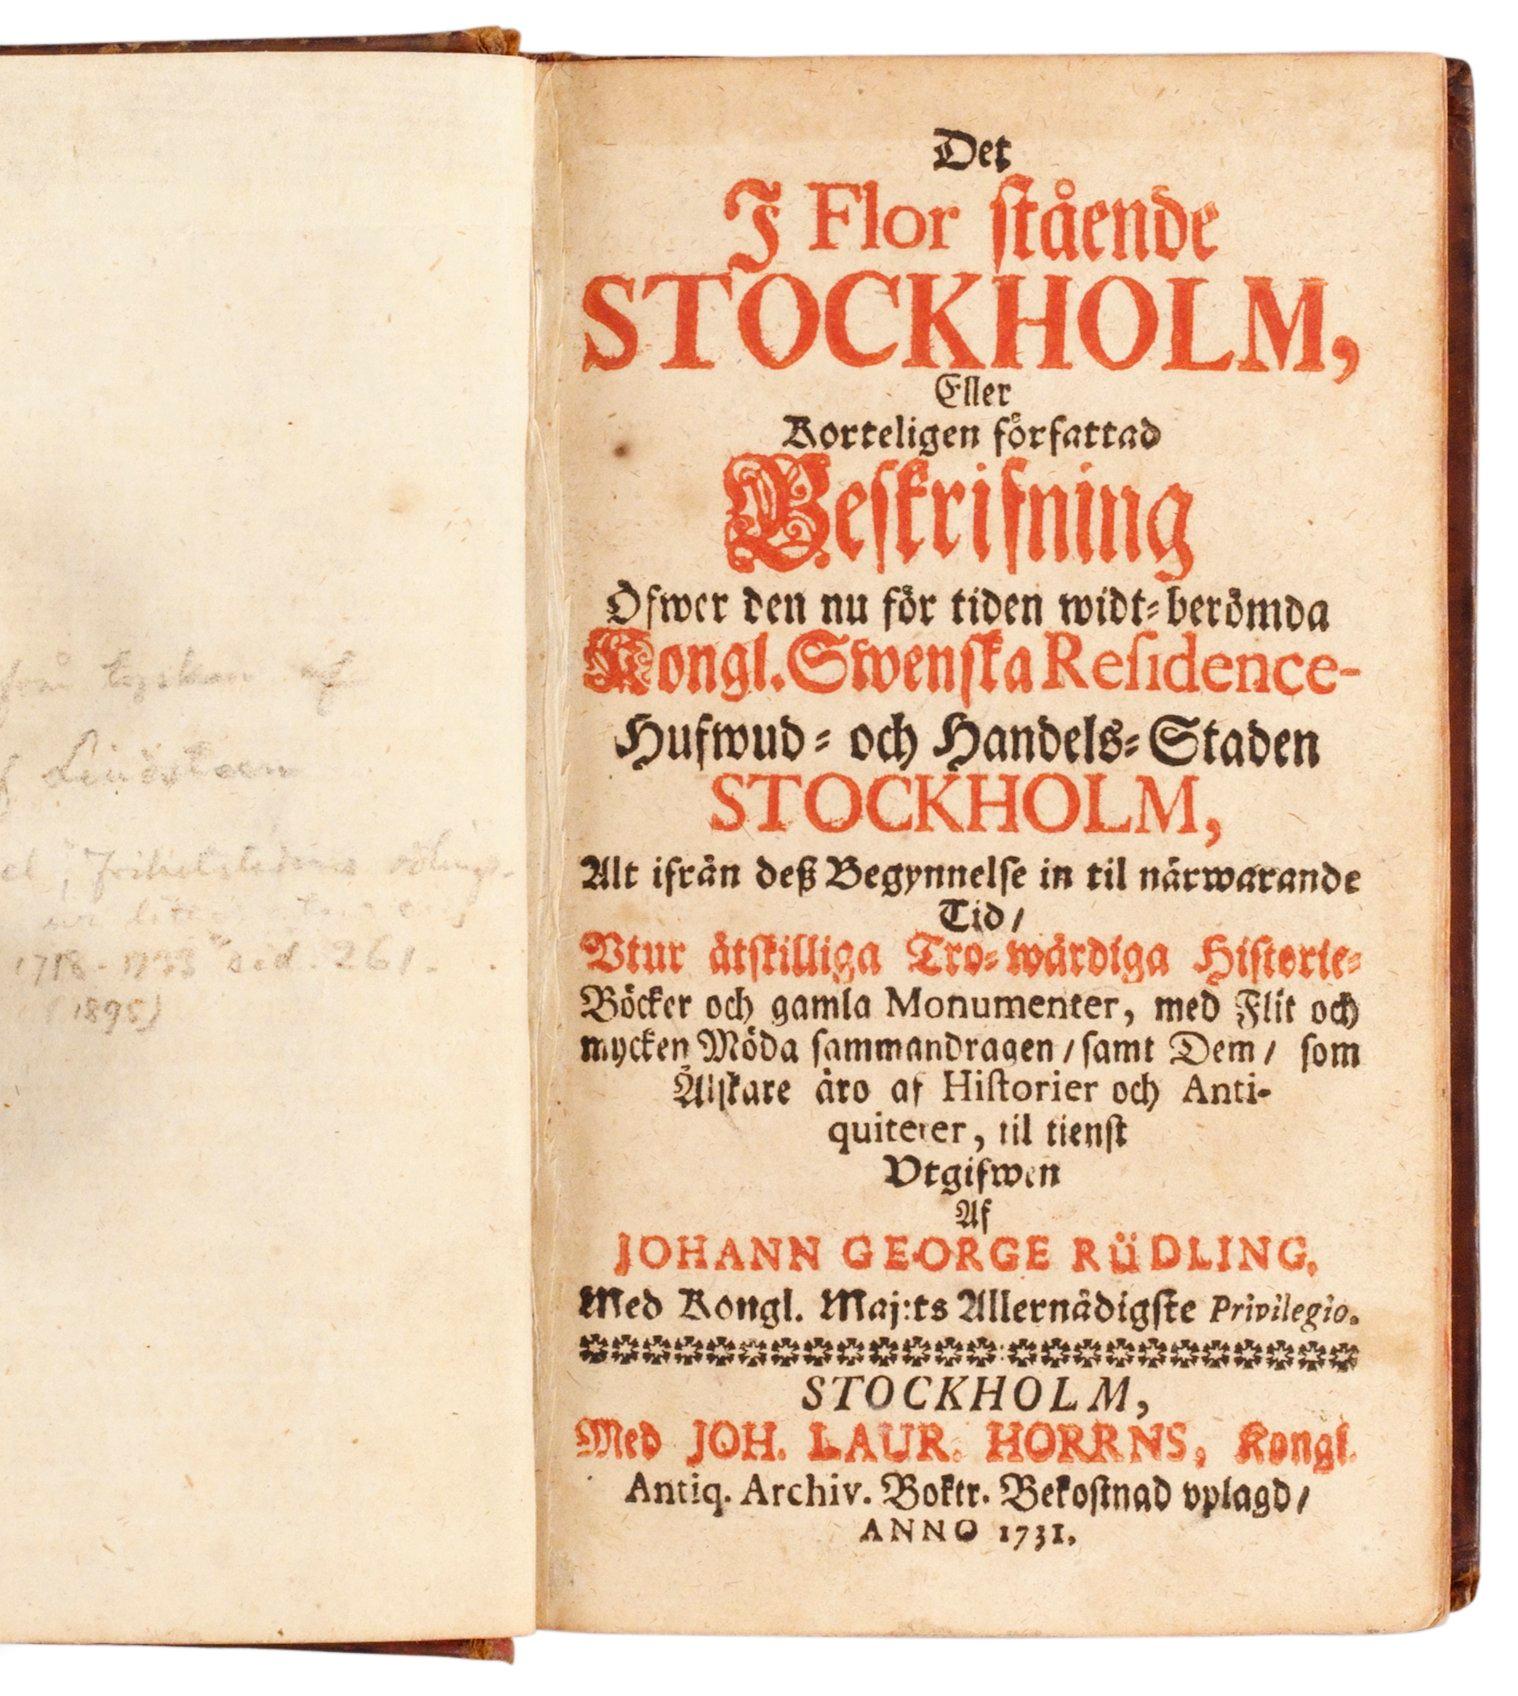 från tyskan af
Lindsteen
"Frihetstidens
1718-1733" sid. 261.
(1895)
Det
I Flor stående
STOCKHOLM,
Eller
Korteligen författad
Beskrifning
Öfwer den nu för tiden widt-berömda
Kongl. Swenska Residence-
Hufwud- och Handels-Staden
STOCKHOLM,
Alt ifrån deß Begynnelse in til närwarande
Tid/
Vtur åtskilliga Tro-wärdiga Historie-
Böcker och gamla Monumenter, med Flit och
mycken Möda sammandragen/ samt Dem/ som
Älskare äro af Historier och Anti-
quiteter, til tienst
Vtgifwen
Af
JOHANN GEORGE RÜDLING,
Med Kongl. Maj:ts Allernådigste Privilegio.
STOCKHOLM,
Med JOH. LAUR. HORRNS, Kongl.
Antiq. Archiv. Boktr. Bekostnad vplagd/
ANNO 1731.